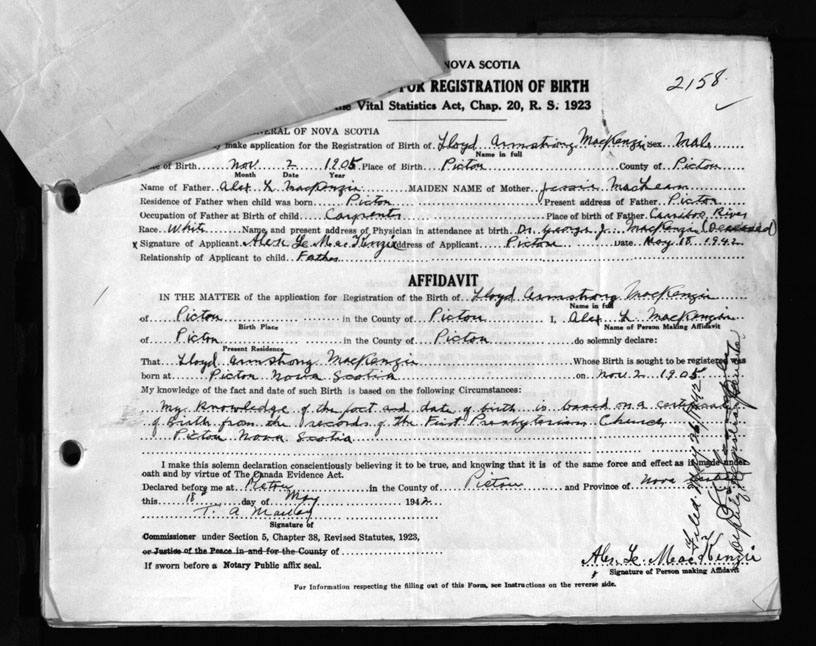 NOVA SCOTIA
2158
FOR REGISTRATION OF BIRTH
the Vital Statistics Act, Chap. 20, R. S. 1923
GENERAL OF NOVA SCOTIA
make application for the Registration of Birth of Lloyd Armstrong MacKenzie Sex Male
Name in full
of Birth Nov. 2 1905 Place of Birth Pictou County of Pictou
Month Date Year
Name of Father Alex L. MacKenzie MAIDEN NAME of Mother Jessie MacLean
Residence of Father when child was born Pictou Present address of Father Pictou
Occupation of Father at Birth of child Carpenter Place of birth of Father Carriboo River
Race White Name and present address of Physician in attendance at birth Dr. George J. MacKenzie (Deceased)
x Signature of Applicant Alex L. MacKenzie Address of Applicant Pictou Date May 18 1942
Relationship of Applicant to child Father
AFFIDAVIT
IN THE MATTER of the application for Registration of the Birth of Lloyd Armstrong MacKenzie
Name in full
of Pictou in the County of Pictou I, Alex L. MacKenzie
Birth Place Name of Person Making Affidavit
of Pictou in the County of Pictou do solemnly declare:
Present Residence
That Lloyd Armstrong MacKenzie Whose Birth is sought to be registered was
born at Pictou Nova Scotia on Nov. 2 1905
My knowledge of the fact and date of such Birth is based on the following Circumstances:
My knowledge of the fact and date of birth is based on a certificate
of Birth from the records of The First Presbyterian Church
Pictou Nova Scotia
I make this solemn declaration conscientiously believing it to be true, and knowing that it is of the same force and effect as if made under
oath and by virtue of The Canada Evidence Act.
Declared before me at Pictou in the County of Pictou and Province of Nova Scotia
this 18th day of May 1942
T. A.
Signature of
Commissioner under Section 5, Chapter 38, Revised Statutes, 1923,
or Justice of the Peace in and for the County of
If sworn before a Notary Public affix seal.
Alex L. MacKenzie
Signature of Person making Affidavit
For Information respecting the filling out of this Form, see Instructions on the reverse side.
Filed May 1942
Deputy Registrar